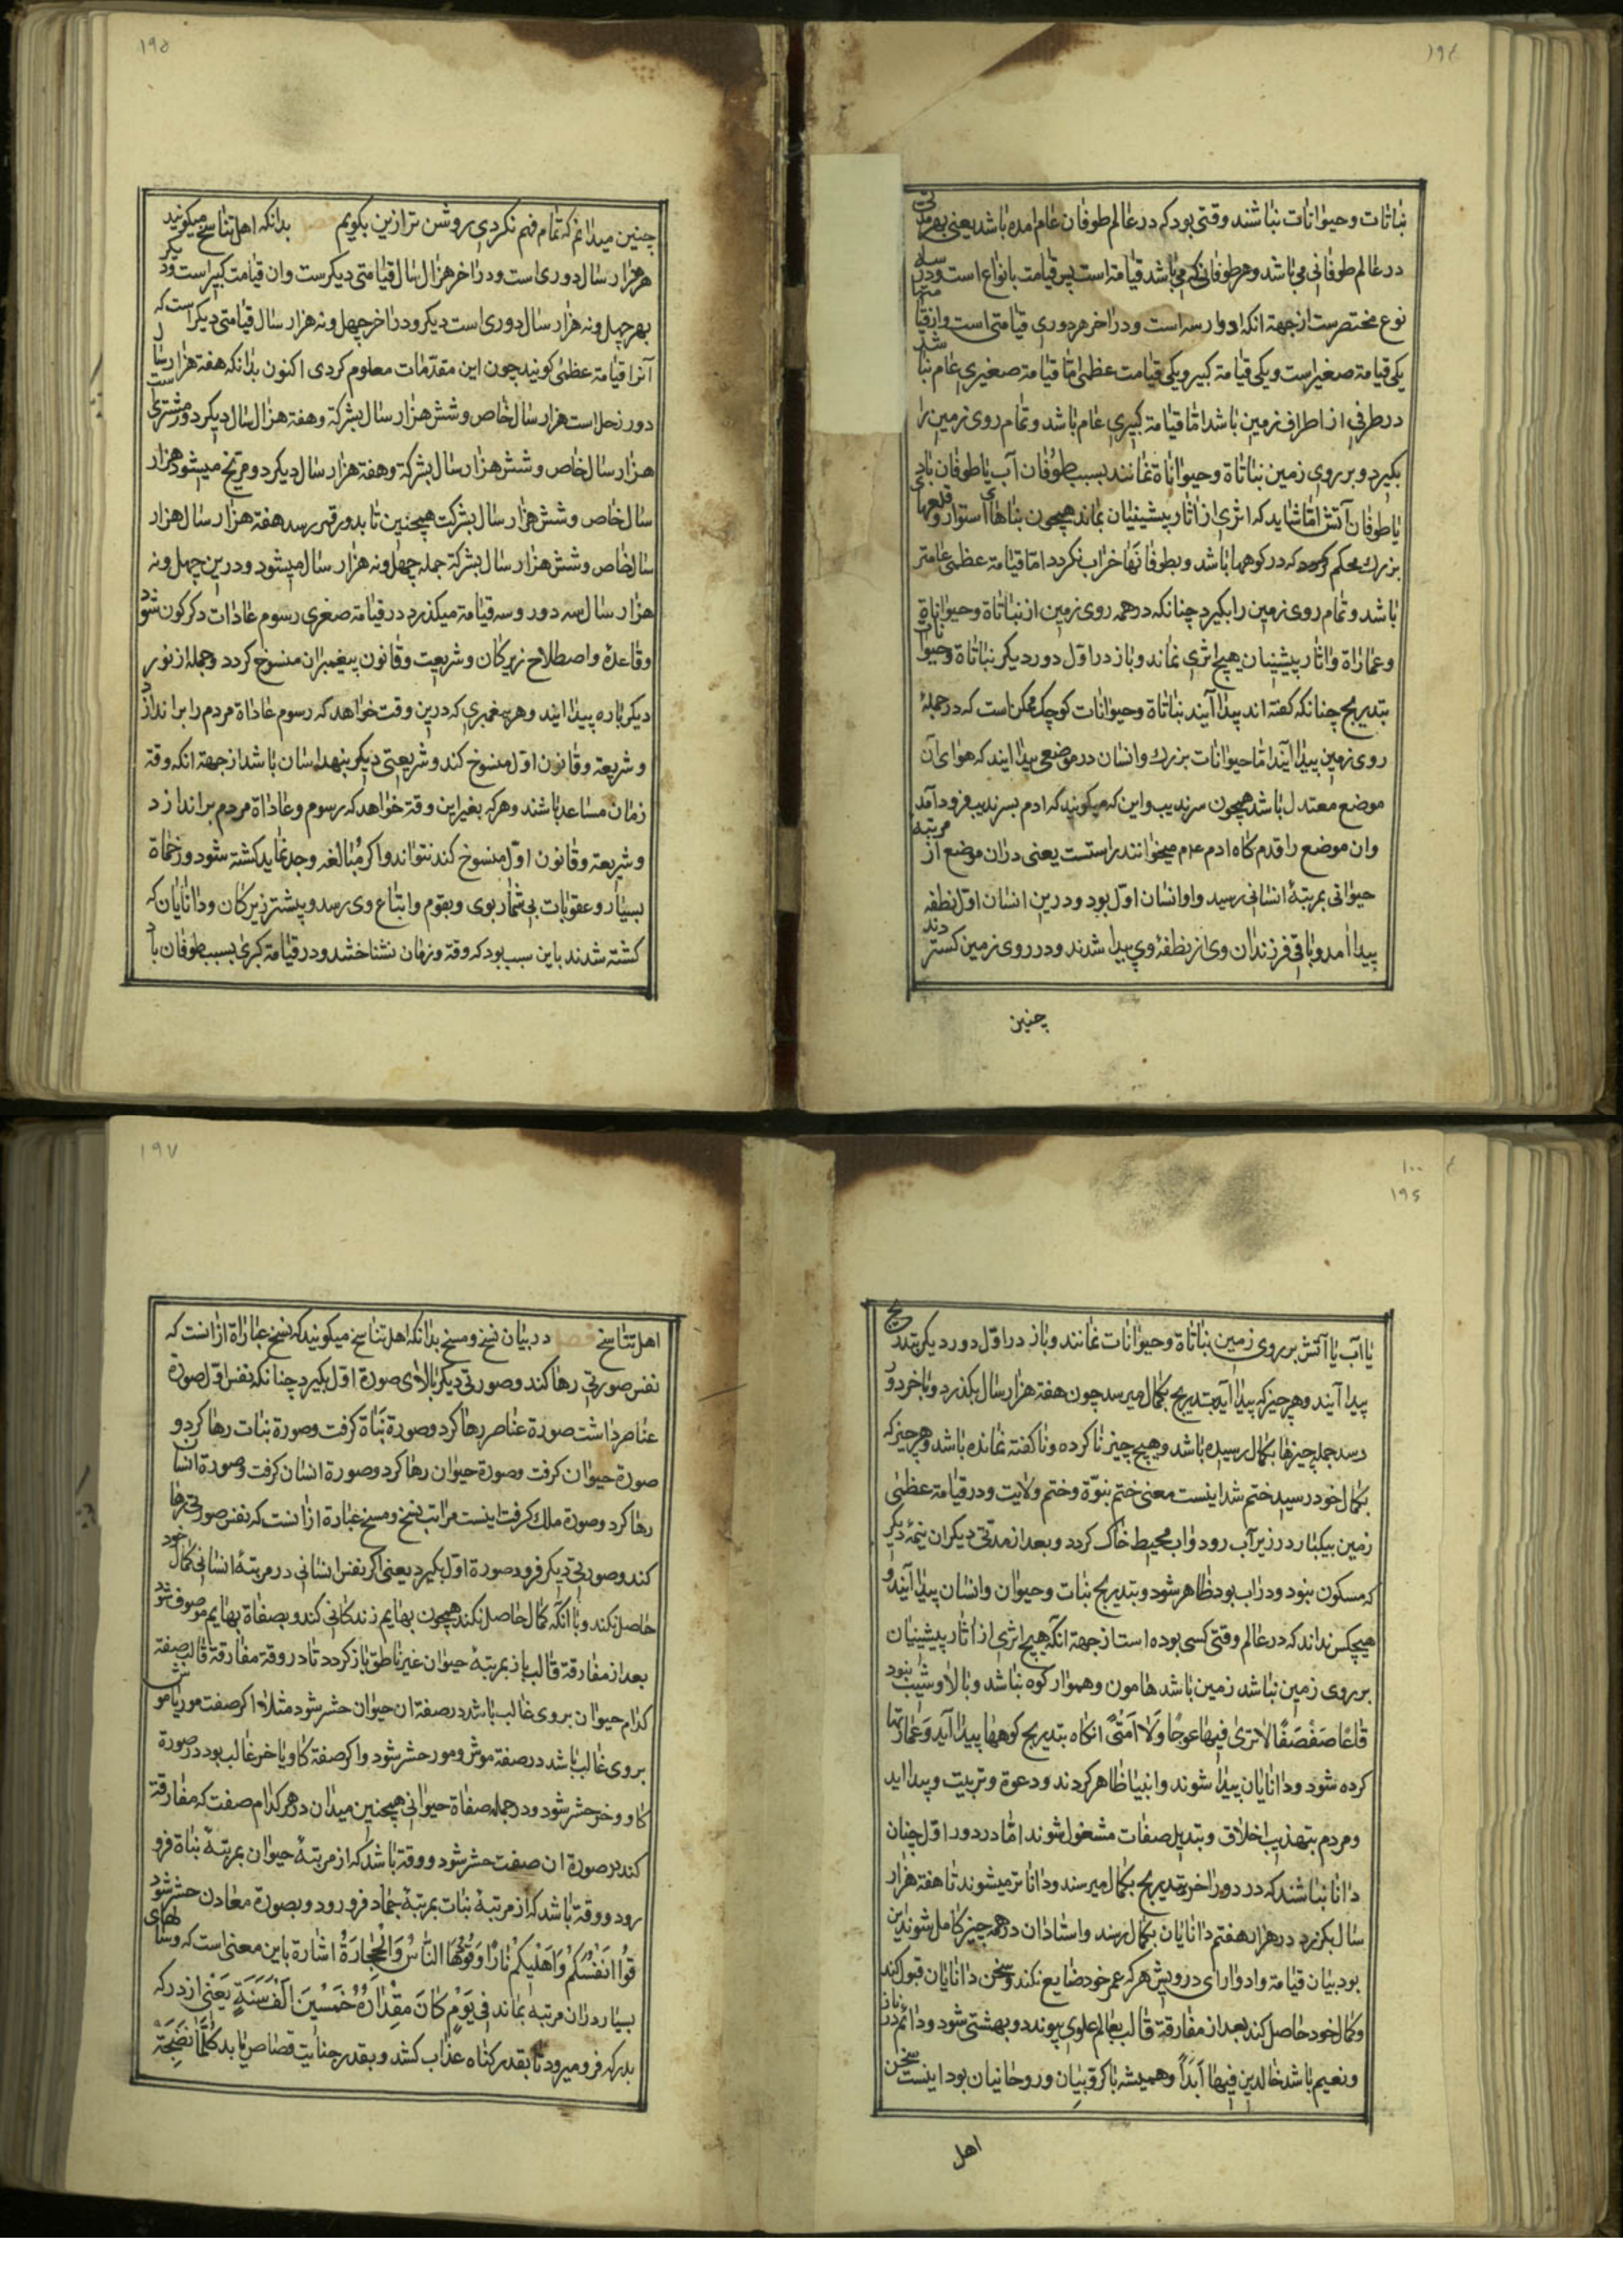 ۱۹٤
نباتات وحیوانات نباشند وقتی بود که در عالم طوفان عام امده باشد یعنی بهر مدتی
در عالم طوفانی می باشد وهر طوفانی که می باشد قیامة است پس قیامت بانواع است ودر سه
نوع مختصرست از جهة انکه ادوار سه است ودر اخر هر دوری قیامتی است وازقیامتها
یکی قیامة صغیر است ویکی قیامة کبیر ویکی قیامت عظمی اما قیامة صغیری عام نباشد
در طرفی از اطراف زمین باشد امّا قیامة کبیری عام باشد وتمام روی زمین را
بکیرد وبر روی زمین نباتاة وحیواناة نمانند بسبب طوُفان آب یا طوفان بادی
یا طوفان آتش امّا شاید که اثری از اثار پیشینیان بماند همچون بناهای استوار وقلعها
بزرك محکم که در کوهها باشد وبطوفانها خراب نکردد امّا قیامة عظمی عامتر
باشد وتمام روی زمین را بکیرد چنانکه در همه روی زمین از نباتاة وحیواناة
وعماراة واثار پیشینیان هیچ اثری نماند وباز در اوّل دور دیکر نباتاة وحیوانات
بتدریج چنانکه کفته اند پیدا آیند نباتاة وحیوانات کوچك ممکن است که در جملهٔ
روی زمین پیدا آیند امّا حیوانات بزرك وانسان در موضعی پیدا ایند که هوای آن
موضع معتدل باشد همچون سرندیب واین که میکویند که ادم بسرندیب فرود آمد
وان موضع را قدم کاه ادم عم میخوانند راستست یعنی دران موضع از مرتبهٔ
حیوانی بمرتبهٔ انسانی رسید واوانسان اوّل بود ودرین انسان اوّل نطفه
پیدا امد وباقی فرزندان وی از نطفهٔ وی پیدا شدند ودر روی زمین کستردند
چنین
۱۹۵
چنین میدانم که تمام فهم نکردی روشن ترازین بکویم بدانکه اهل تناسخ میکویند
هر هزار سال دوری است ودر اخر هزار سال قیامتی دیکرست وان قیامت کبیر است ودیکر
بهر چهل ونه هزار سال دوری است دیکر ودر اخر چهل ونه هزار سال قیامتی دیکر است که
آنرا قیامة عظمی کویند چون این مقدّمات معلوم کردی اکنون بدانکه هفة هزار سال
دور زحل است هزار سال خاص وشش هزار سال بشرکة وهفة هزار سال دیکر دور مشتریست
هزار سال خاص وشش هزار سال بشرکة وهفة هزار سال دیکر دور مریخ میشود هزار
سال خاص وشش هزار سال بشرکت همچنین تا بدور قمر رسد هفة هزار سال هزار
سال خاص وشش هزار سال بشرکة جمله چهل ونه هزار سال میشود ودرین چهل ونه
هزار سال سه دور وسه قیامة میکذرد در قیامة صغری رسوم عادات دکرکون شود
وقاعدهٔ واصطلاح زیرکان وشریعت وقانون پیغمبران منسوخ کردد وجمله از نور
دیکر باره پیدا ایند وهر پیغمبری که درین وقت خواهد که رسوم عاداة مردم را براندازد
وشریعة وقانون اوّل منسوخ کند وشریعتی دیکر بنهد اسان باشد از جهة انکه وقة
زمان مساعد باشند وهر که بغیر این وقة خواهد که رسوم وعاداة مردم براندازد
وشریعة وقانون اوّل منسوخ کند نتواند واکر مُبالغه وجد نماید کشته شود وزخماة
بسیار وعقوبات بی شمار بوی وبقوم واتباع وی رسد وپیشتر زیرکان ودانایان که
کشته شدند باین سبب بود که وقة وزمان نشناخشد ودر قیامة کبری بسبب طوفان باد
۱۰۰
۱۹٤
یا آب یا آتش بر روی زمین نباتاة وحیوانات نمانند وباز در اوّل دور دیکر بتدریج
پیدا آیند وهر چیز که پیدا آید بتدریج بکمال میرسد چون هفة هزار سال بکذرد وباخر دور
رسد جمله چیزها بکمال رسیده باشد وهیچ چیز نا کرده ونا کفته نمانده باشد وهر چیز که
بکمال خود رسید ختم شد اینست معنی ختم نبوّة وختم ولایت ودر قیامة عظمی
زمین بیکبار در زیر آب رود واب محیط خاک کردد وبعد از مدتی دیکر ان نیمهٔ دیکر
که مسکون نبود ودراب بود ظاهر شود وبتدریج نبات وحیوان وانسان پیدا آیند و
هیچکس نداند که در عالم وقتی کسی بوده است از جهة انکه هیچ اثری از اثار پیشینیان
بر روی زمین نباشد زمین باشد هامون وهموار کوه نباشد وبالا وشیب نبود
قاعًا صَفْصَفًا لا تریٰ فیها عوجًا وَلا اَمْتًی انکاه بتدریج کوهها پیدا آید وعمارتها
کرده شود ودانایان پیدا شوند وانبیا ظاهر کردند ودعوة وتربیت وپیدا اید
ومردم بتهذیب اخلاق وبتدیل صفات مشغول شوند امّا در دور اوّل چنان
دانا نباشند که در دور اخر بتدریج بکمال میرسند ودانا تر میشوند تا هفة هزار
سال بکزرد در هزار هفتم دانایان بکمال رسند واستادان در همه چیز کامل شوند این
بود بیان قیامة وادوار ای درویش هر که عمر خود ضایع نکند وسخن دانایان قبول کند
وکمال خود حاصل کند بعد از مفارقة قالب بعالم علوی پیوندد وبهشتی شود ودائم در ناز
ونعیم باشد خالدین فیها اَبَدًا وهمیشه با کروبیان وروحانیان بود اینست سخن
اهل
۱۹۷
اهل تناسخ فصل در بیان نسخ ومسخ بدانکه اهل تناسخ میکویند که نسخ عباراة ازانست که
نفس صورتی رها کند وصورتی دیکر بالاوی صورة اوّل بکیرد چنانکه نفس اوّل صورة
عناصر داشت صورة عناصر رها کرد وصورة نباة کرفت وصورة نبات رها کرد و
صورة حیوان کرفت وصورة حیوان رها کرد وصورة انسان کرفت وصورة انسان
رها کرد وصورة ملك کرفت اینست مراتب نسخ ومسخ عبارة ازانست که نفس صورتی رها
کند وصورتی دیکر فرود صورة اوّل بکیرد یعنی اکر نفس انسانی در مرتبهٔ انسانی کمال خود
حاصل نکند وبا انکه کمال حاصل نکند همچون بهایم زندکانی کند وبصفاة بهایم موصوف شود
بعد از مفارقة قالب باز بمرتبهٔ حیوان غیر ناطق باز کردد تا در وقة مفارقة قالب صفة
کدام حیوان بروی غالب باشد در صفة ان حیوان حشر شود مثلا اکر صفت مور یا موش
بروی غالب باشد در صفة موش ومور حشر شود واکر صفة کاو یا خر غالب بود در صورة
کاو وخر حشر شود ودر جمله صفاة حیوانی همچنین میدان در هر کدام صفت که مفارقة
کند بر صورة ان صفت حشر شود ووقة باشد که از مرتبهٔ حیوان بمرتبهٔ نباة فرو
رود ووقة باشد که از مرتبهٔ نبات بمرتبهٔ جماد فرو رود وبصورة معادن حشر شود
قُوا اَنفُسَکُمْ وَاَهْلیکُم نارًا وَقُودُها النّاسُ وَالْحِجارَةُ اشارة باین معنی است که وسالهای
بسیار دران مرتبه بماند فی یَوْمٍ کانَ مِقْدارُهُ خَمْسینَ اَلْفَ سَنَةٍ یَعْنی از درکه
بدرکه فرو میرود تا بقدر کناه عذاب کشد وبقدر جنایت قصاص یابد کُلَّما نَضِجَتْ